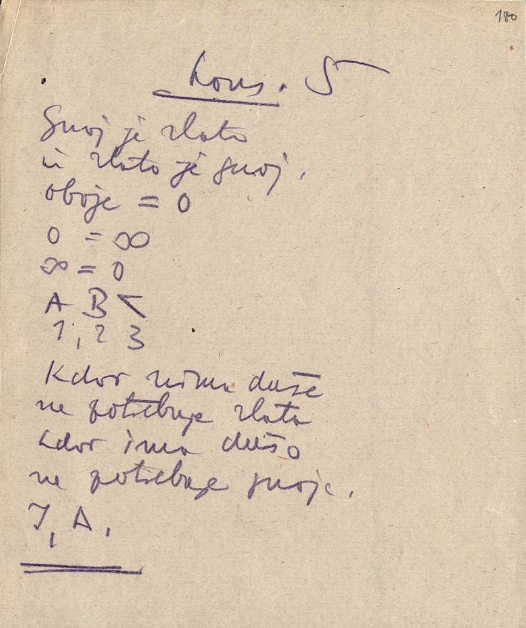 180
kons. 5
Gnoj je zlato
in zlato je gnoj.
oboje = 0
0 = ∞
∞ = 0
A B <
1, 2 3
Kdor nima duše
ne potrebuje zlata
kdor ima dušo
ne potrebuje gnoja.
I, A.